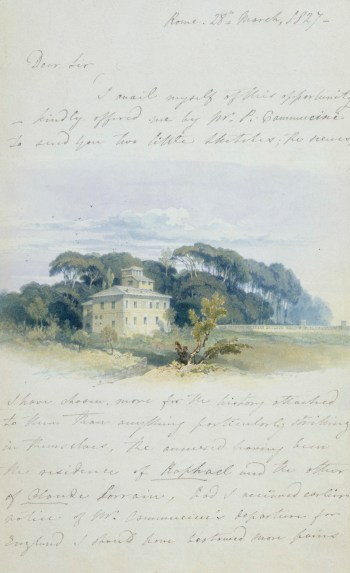 Rome. 28th March, 1827 -
Dear Sir,
I avail myself of this opportunity
- kindly offered me by Mr. P. Cammuccini
to send you two little sketches, the scenes
I have chosen more for the history attached
to them than anything particularly striking
in themselves, the annexed having been
the residence of Raphael and the other
of Claude Lorrain, had I received earlier
notice of Mr. Cammuccini's departure for
England I should have bestowed more pains